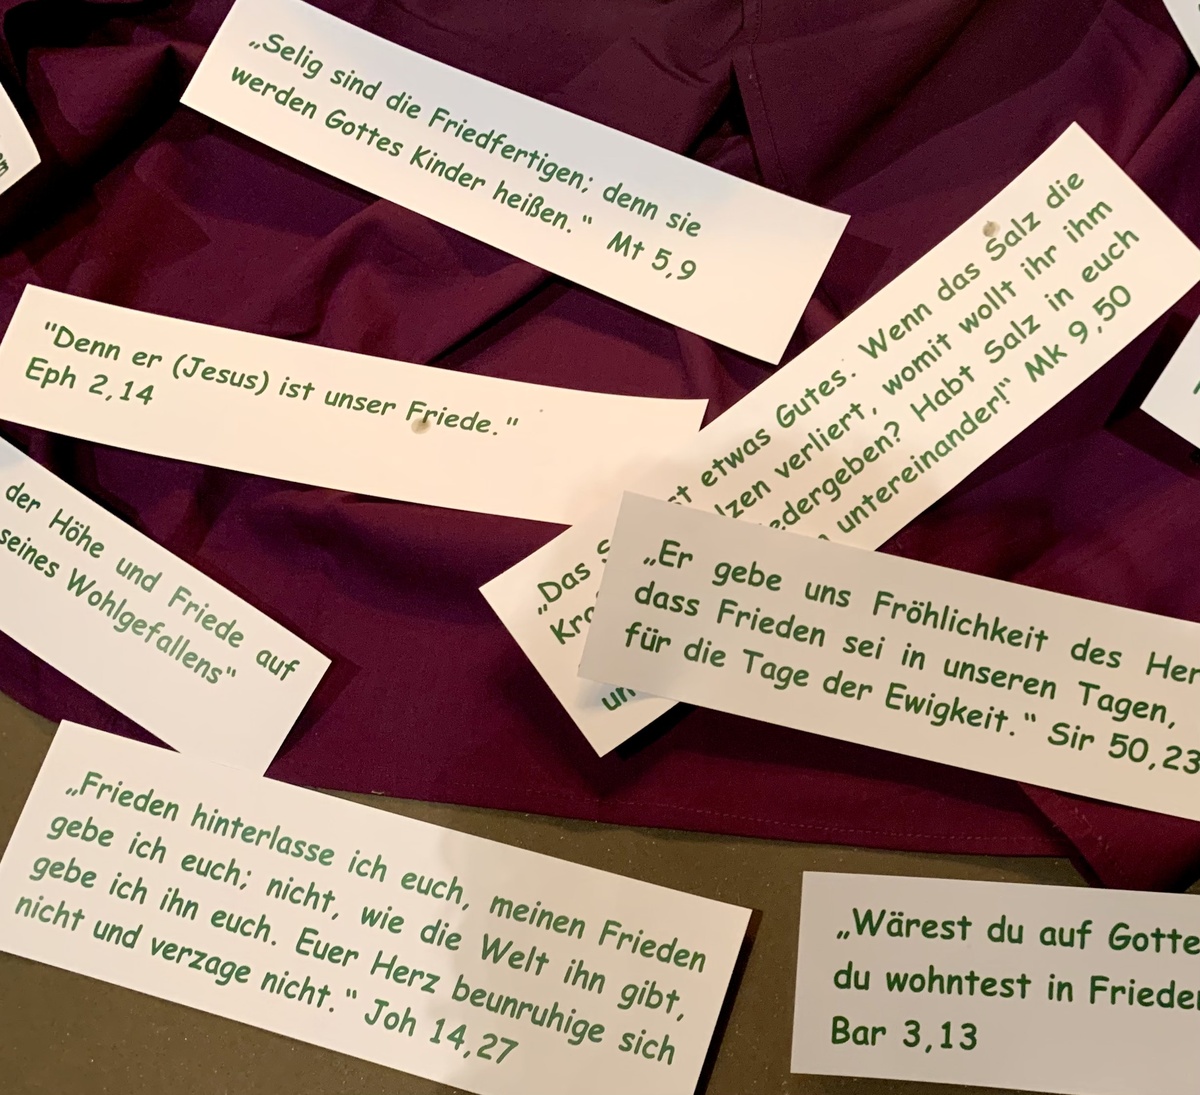 „Selig sind die Friedfertigen; denn sie
werden Gottes Kinder heißen." Mt 5,9
"Denn er (Jesus) ist unser Friede."
Eph 2,14
„Das etwas Gutes. Wenn das Salz die
verliert, womit wollt ihr ihm
Habt Salz in euch
untereinander!" Mk 9,50
der Höhe und Friede auf
seines Wohlgefallens"
„Er gebe uns Fröhlichkeit des
dass Frieden sei in unseren Tagen,
für die Tage der Ewigkeit." Sir 50,23
„Frieden hinterlasse ich euch, meinen Frieden
gebe ich euch; nicht, wie die Welt ihn gibt,
gebe ich ihn euch. Euer Herz beunruhige sich
nicht und verzage nicht." Joh 14,27
„Wärest du auf
du wohntest in
Bar 3,13